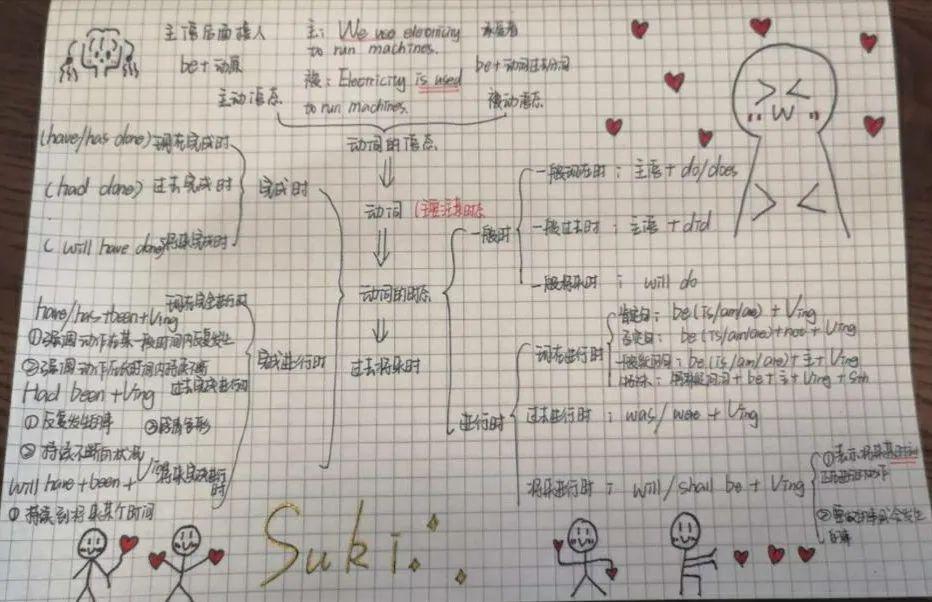 主语后面接人
be+动原
主动语态
主: We use electricity
to run machines.
被: Electricity is used
to run machines.
承受者
be+动词过去分词
被动语态
动词的语态
(have/has done) 现在完成时
(had done) 过去完成时
( will have done) 将来完成时
完成时
动词
动词的时态
过去将来时
一般时
一般现在时: 主语 + do/does
一般过去时: 主语 + did
一般将来时: will do
进行时
现在进行时
肯定句: be (is/am/are) + Ving
否定句: be (is/am/are)+not + Ving
一般疑问句: be (is/am/are)+主+Ving
+be+主+Ving+Sth
过去进行时: was/were + Ving
将来进行时: will/shall be + Ving
①表示将来某时间
②
完成进行时
have/has+been+Ving 现在完成进行时
①强调动作在某一段时间内反复发生
②强调动作在长时间内持续不断
Had been + Ving 过去完成进行时
①反复发生的事
②持续不断的状况
will have + been + Ving 将来完成进行时
①持续到将来某个时间
Suki